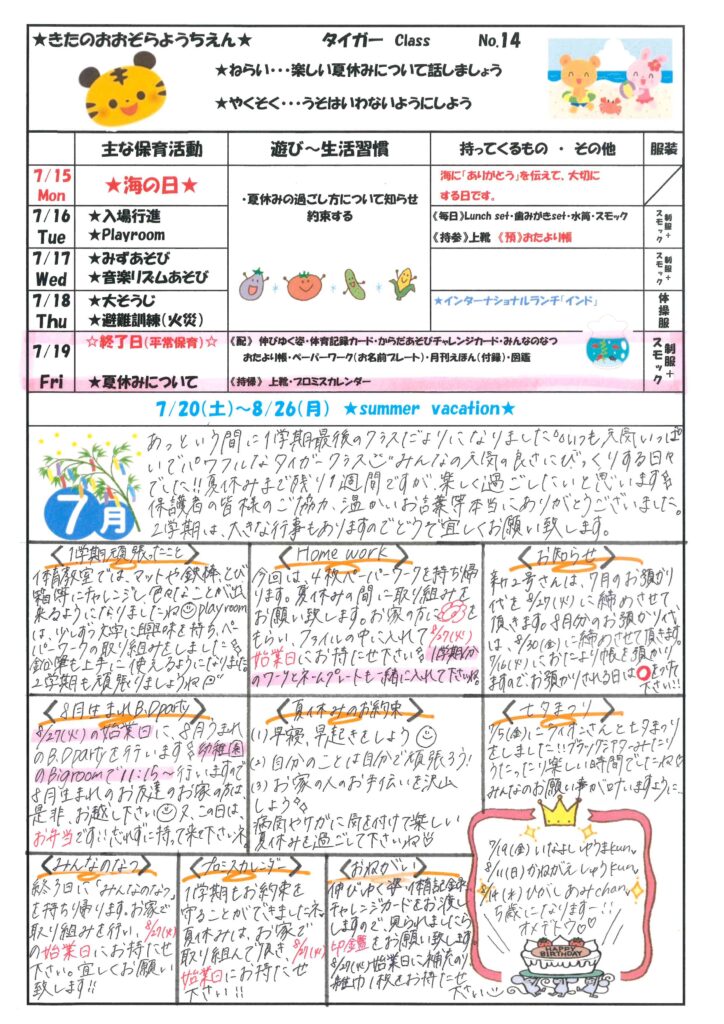 ★きたのおおぞらようちえん★ タイガー Class No.14
★ねらい・・・楽しい夏休みについて話しましょう
★やくそく・・・うそはいわないようにしよう
主な保育活動 遊び～生活習慣 持ってくるもの ・ その他 服装
7/15 Mon
★海の日★
・夏休みの過ごし方について知らせ
約束する
海に「ありがとう」を伝えて、大切に
する日です。
7/16 Tue
★入場行進
★Playroom
《毎日》Lunch set・歯みがきset・水筒・スモック
《持参》上靴 《預》おたより帳
制服+スモック
7/17 Wed
★みずあそび
★音楽リズムあそび
制服+スモック
7/18 Thu
★大そうじ
★避難訓練(火災)
★インターナショナルランチ「インド」
体操服
7/19 Fri
☆終了日(平常保育)☆
★夏休みについて
《配》 伸びゆく姿・体育記録カード・からだあそびチャレンジカード・みんなのなつ
おたより帳・ペーパーワーク(お名前プレート)・月刊えほん(付録)・図鑑
《持帰》 上靴・プロミスカレンダー
制服+スモック
7/20(土)～8/26(月) ★summer vacation★
7月
あっという間に1学期最後のクラスだよりになりました。いつも元気いっぱ
いでパワフルなタイガークラス みんなの元気の良さにびっくりする日々
でした!!夏休みまで残り1週間ですが、楽しく過ごしたいと思います
保護者の皆様のご協力、温かいお言葉等本当にありがとうございました。
2学期は、大きな行事もありますのでどうぞ宜しくお願い致します。
〈1学期頑張ったこと〉
体育教室では、マットや鉄棒、とび
箱等にチャレンジし色々なことが出
来るようになりましたね playroom
は、少しずつ文字に興味を持ち、ペー
パーワークの取り組みをしました
鉛筆も上手に使えるようになりました。
2学期も頑張りましょうね
〈Home work〉
今回は、4枚ペーパーワークを持ち帰
ります。夏休みの間に取り組みを
お願い致します。お家の方に
をもらい、ファイルの中に入れて8/27(火)
始業日にお持たせ下さい 1学期分
のワークとネームプレートも一緒に入れて下さいね
〈お知らせ〉
新2号さんは、7月のお預かり
代を8/27(火)に締めさせて
頂きます。8月分のお預かり代
は、8/30(金)に締めさせて頂きます。
7/16(火)におたより帳を預かり
ますので、お預かりされる日は○をつけて
下さい!!
〈8月うまれB.Dparty〉
8/27(火)の始業日に、8月うまれ
のB.Dpartyを行います 幼稚園
のBigroomで11:15～行いますので
8月生まれのお友達のお家の方は
是非、お越し下さい 又、この日は、
お弁当です!!忘れずに持って来て下さいネ
〈夏休みのお約束〉
(1)早寝、早起きをしよう
(2)自分のことは自分で頑張ろう!
(3)お家の人のお手伝いを沢山
しよう
病気やケガに気を付けて楽しい
夏休みを過ごして下さいね
〈七夕まつり〉
7/5(金)にライオンさんと七夕まつり
をしました!!ブラックシアターみたり
うたったり楽しい時間でしたね
みんなのお願い事が叶いますように…
〈みんなのなつ〉
終了日に「みんなのなつ」
を持ち帰ります。お家で
取り組みを行い、8/27(火)
の始業日にお持たせ
下さい。宜しくお願い
致します!!
〈プロミスカレンダー〉
1学期もお約束を
守ることができましたネ
夏休みは、お家で
取り組んで頂き、8/27(火)
始業日にお持たせ
下さい!!
〈おねがい〉
伸びゆく姿・体育記録、
チャレンジカードをお渡し
しますので、見られましたら
印鑑をお願い致します。
8/27(火)始業日に補充の
雑巾1枚をお持たせ
下さい
7/19(金)いなよし しゅうまkun
8/11(日)かねがえ しゅうkun
8/14(水)ひがし あみchan
5歳になります―!!
オメデトウ
HAPPY
BIRTHDAY